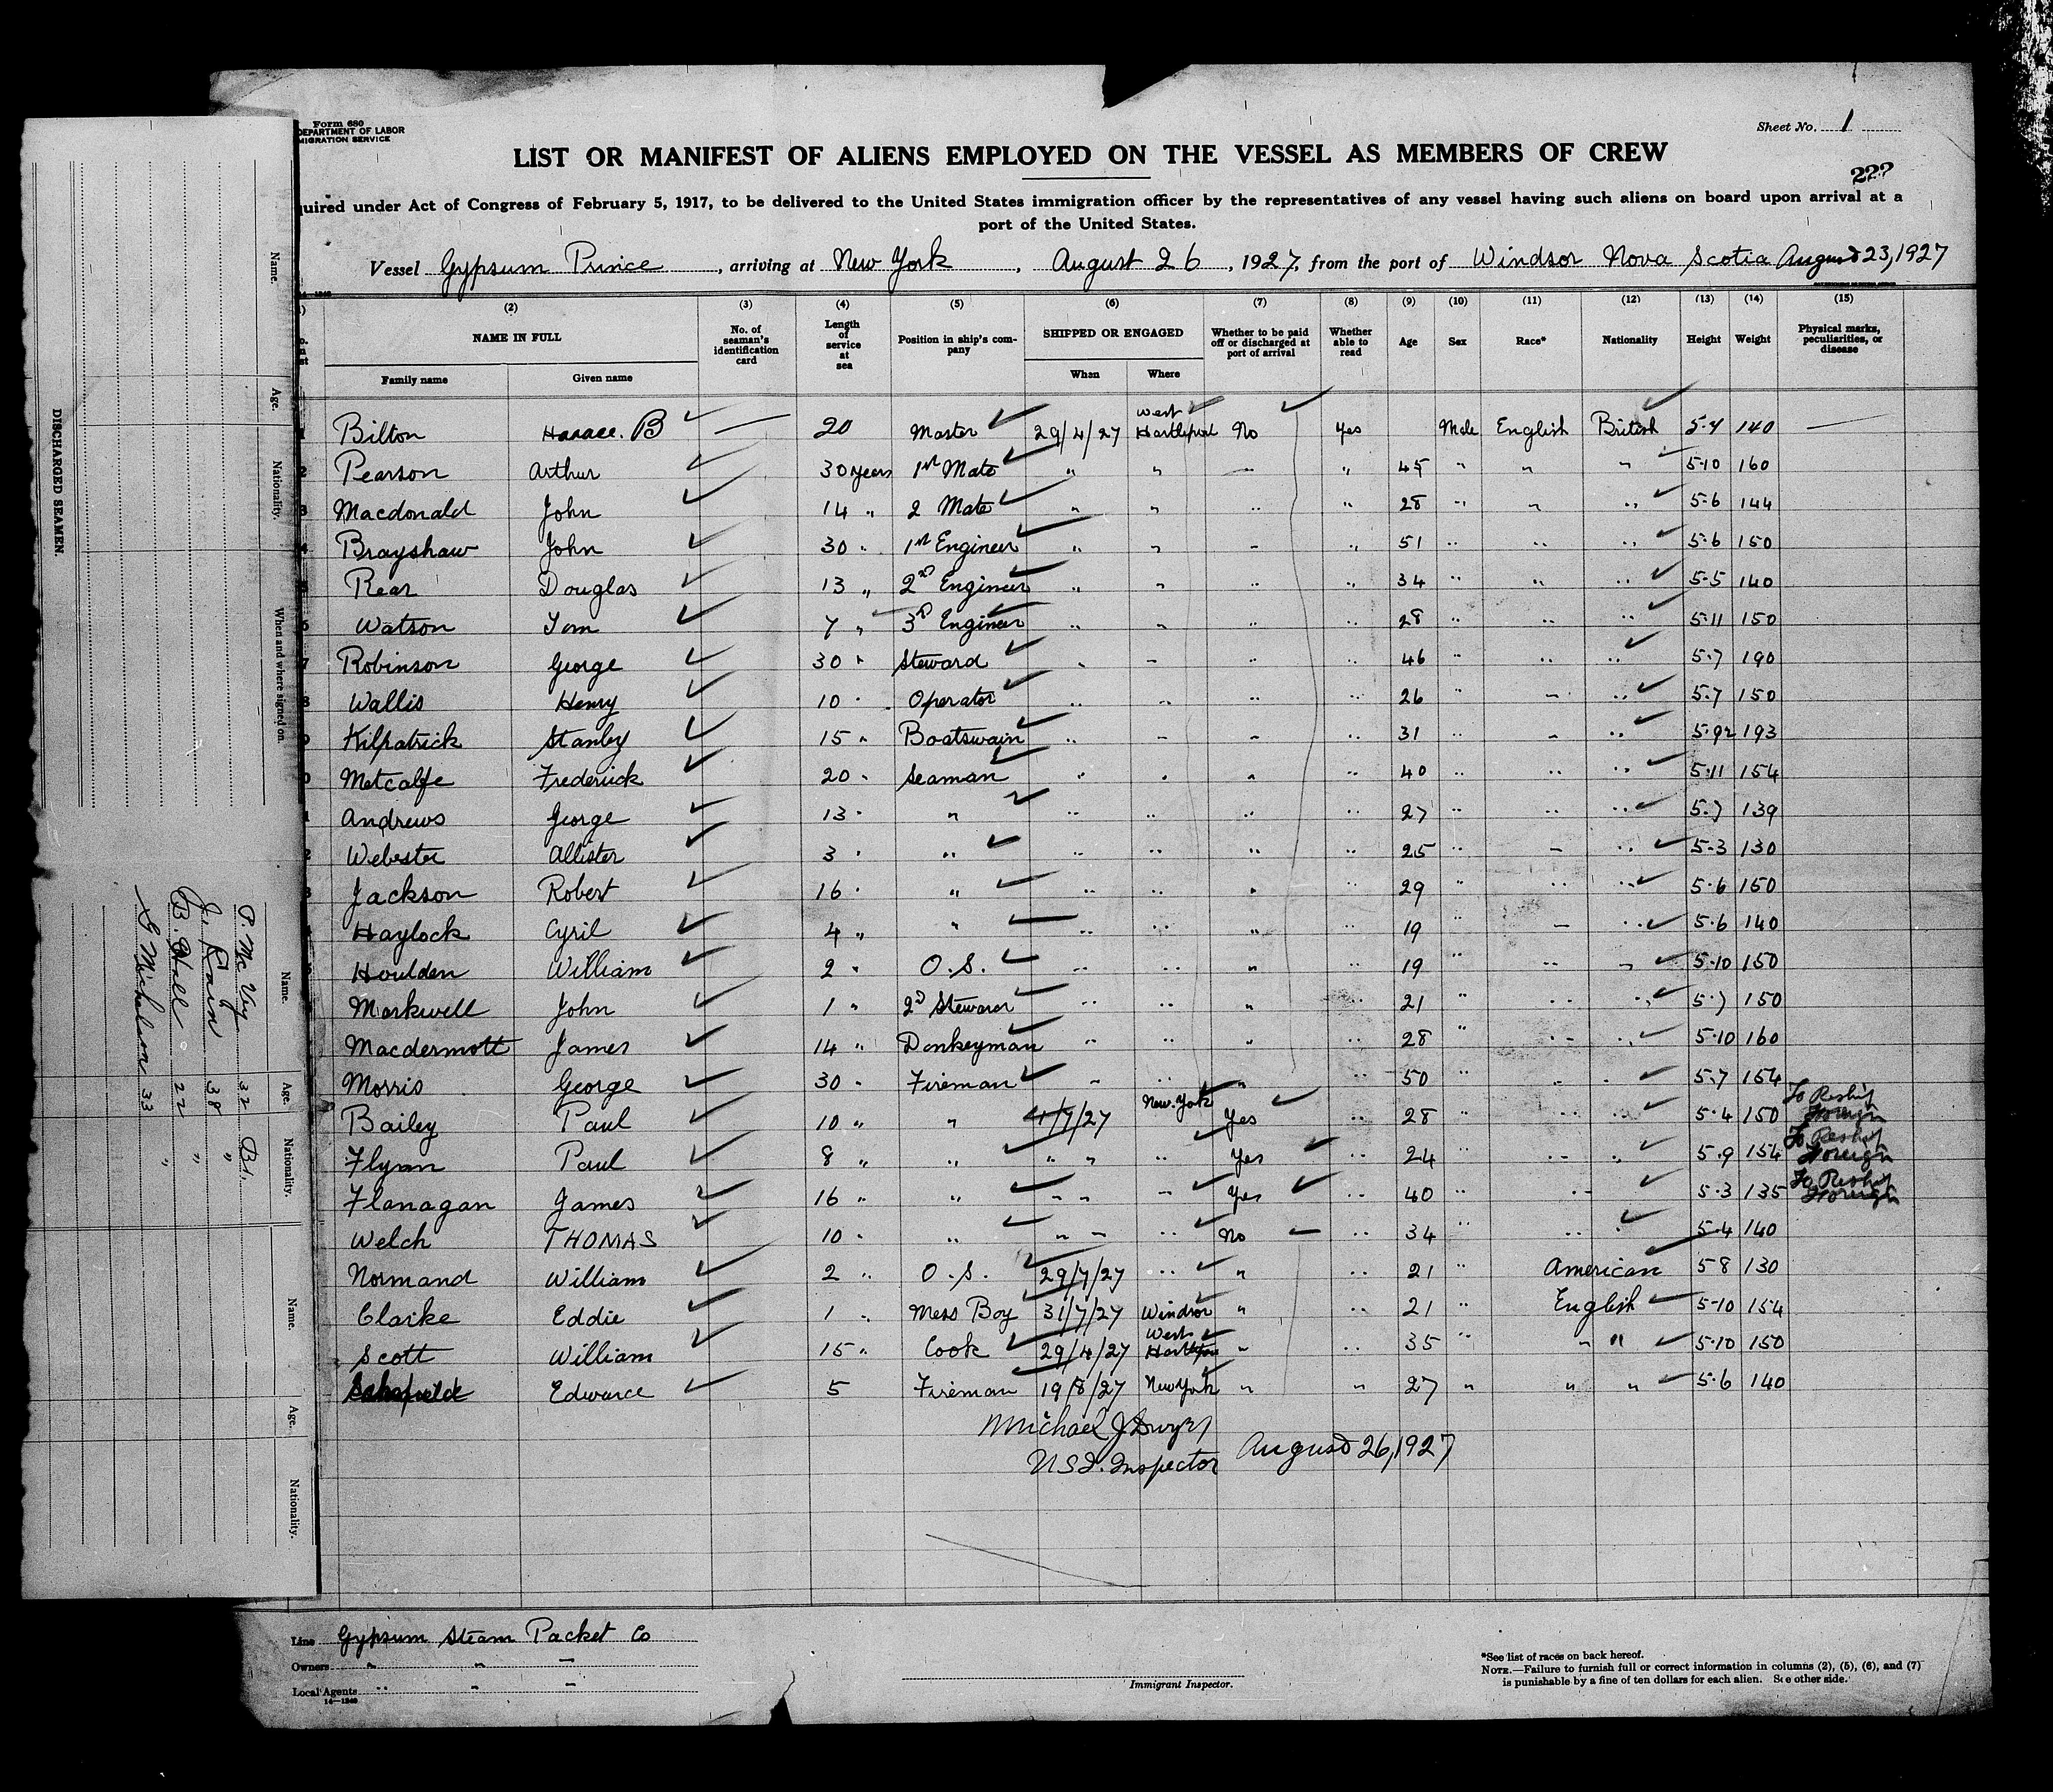 Form 680
DEPARTMENT OF LABOR
MIGRATION SERVICE
Sheet No. 1
LIST OR MANIFEST OF ALIENS EMPLOYED ON THE VESSEL AS MEMBERS OF CREW
222
quired under Act of Congress of February 5, 1917, to be delivered to the United States immigration officer by the representatives of any vessel having such aliens on board upon arrival at a
port of the United States.
Vessel Gypsum Prince, arriving at New York, August 26, 1927, from the port of Windsor Nova Scotia August 23, 1927
(2) (3) (4) (5) (6) (7) (8) (9) (10) (11) (12) (13) (14) (15)
NAME IN FULL No. of seaman's identification card Length of service at sea Position in ship's company SHIPPED OR ENGAGED Whether to be paid off or discharged at port of arrival Whether able to read Age Sex Race* Nationality Height Weight Physical marks, peculiarities, or disease
Family name Given name When Where
Bilton Horace. B — 20 Master 29/4/27 West Hartlepool No yes Male English British 5-4 140 —
Pearson Arthur 30 years 1st Mate " " " " 45 " " " 5-10 160
Macdonald John 14 " 2 Mate " " " " 28 " " " 5-6 144
Brayshaw John 30 " 1st Engineer " " " " 51 " " " 5-6 150
Rear Douglas 13 " 2nd Engineer " " " " 34 " " " 5-5 140
Watson Tom 7 " 3rd Engineer " " " " 28 " " " 5-11 150
Robinson George 30 " Steward " " " " 46 " " " 5-7 190
Wallis Henry 10 " Operator " " " " 26 " " " 5-7 150
Kilpatrick Stanley 15 " Boatswain " " " " 31 " " " 5-9½ 193
Metcalfe Frederick 20 " Seaman " " " " 40 " " " 5-11 154
Andrews George 13 " " " " " " 27 " " " 5-7 139
Webster Allister 3 " " " " " " 25 " " " 5-3 130
Jackson Robert 16 " " " " " " 29 " " " 5-6 150
Haylock Cyril 4 " " " " " " 19 " " " 5-6 140
Houlden William 2 " O.S. " " " " 19 " " " 5-10 150
Markwell John 1 " 2nd Steward " " " " 21 " " " 5-7 150
Macdermott James 14 " Donkeyman " " " " 28 " " " 5-10 160
Morris George 30 " Fireman " " " " 50 " " " 5-7 154
Bailey Paul 10 " " 4/7/27 New York Yes " 28 " " " 5-4 150 To Reship Foreign
Flynn Paul 8 " " " " Yes " 24 " " " 5-9 154 To Reship Foreign
Flanagan James 16 " " " " Yes " 40 " " " 5-3 135 To Reship Foreign
Welch THOMAS 10 " " " " No " 34 " " " 5-4 140
Normand William 2 " O.S. 29/7/27 " " " 21 " American 5 8 130
Clarke Eddie 1 " Mess Boy 31/7/27 Windsor " " 21 " English 5-10 154
Scott William 15 " Cook 29/4/27 West Hartlepool " " 35 " " " 5-10 150
Edward 5 Fireman 19/8/27 New York " " 27 " " " 5-6 140
Michael J Dwyer
U.S.I. Inspector August 26, 1927
Line Gypsum Steam Packet Co
Owners " " "
Local Agents " " "
14—1240
Immigrant Inspector.
*See list of races on back hereof.
NOTE.—Failure to furnish full or correct information in columns (2), (5), (6), and (7)
is punishable by a fine of ten dollars for each alien. See other side.
DISCHARGED SEAMEN.
Name. Age. Nationality. When and where signed on.
Name. Age. Nationality.
P. McVey 32 Br.
J. 38 "
B. Hall 22 "
Michelson 33 "
Name. Age. Nationality.